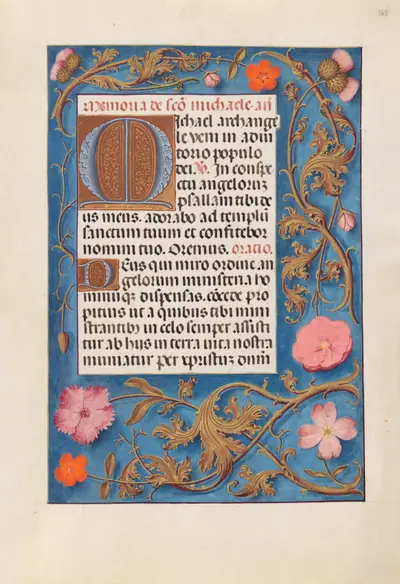 Memoria de scō michaele
Michael archange
le veni in adiu
torio populo
dei. ℣. In conspe
ctu angeloruꝫ
psallam tibi de
us meus. adorabo ad templū
sanctum tuum et confitebor
nomini tuo. Oremus. oratio.
Deus qui miro ordine. an
gelorum ministeria ho
minuqꝫ dispensas. cōcede pro
pitius ut a quibus tibi mini
strantibꝫ in celo semper assisti
tur ab his in terra uita nostra
muniatur per xpristuꝫ dnm̄